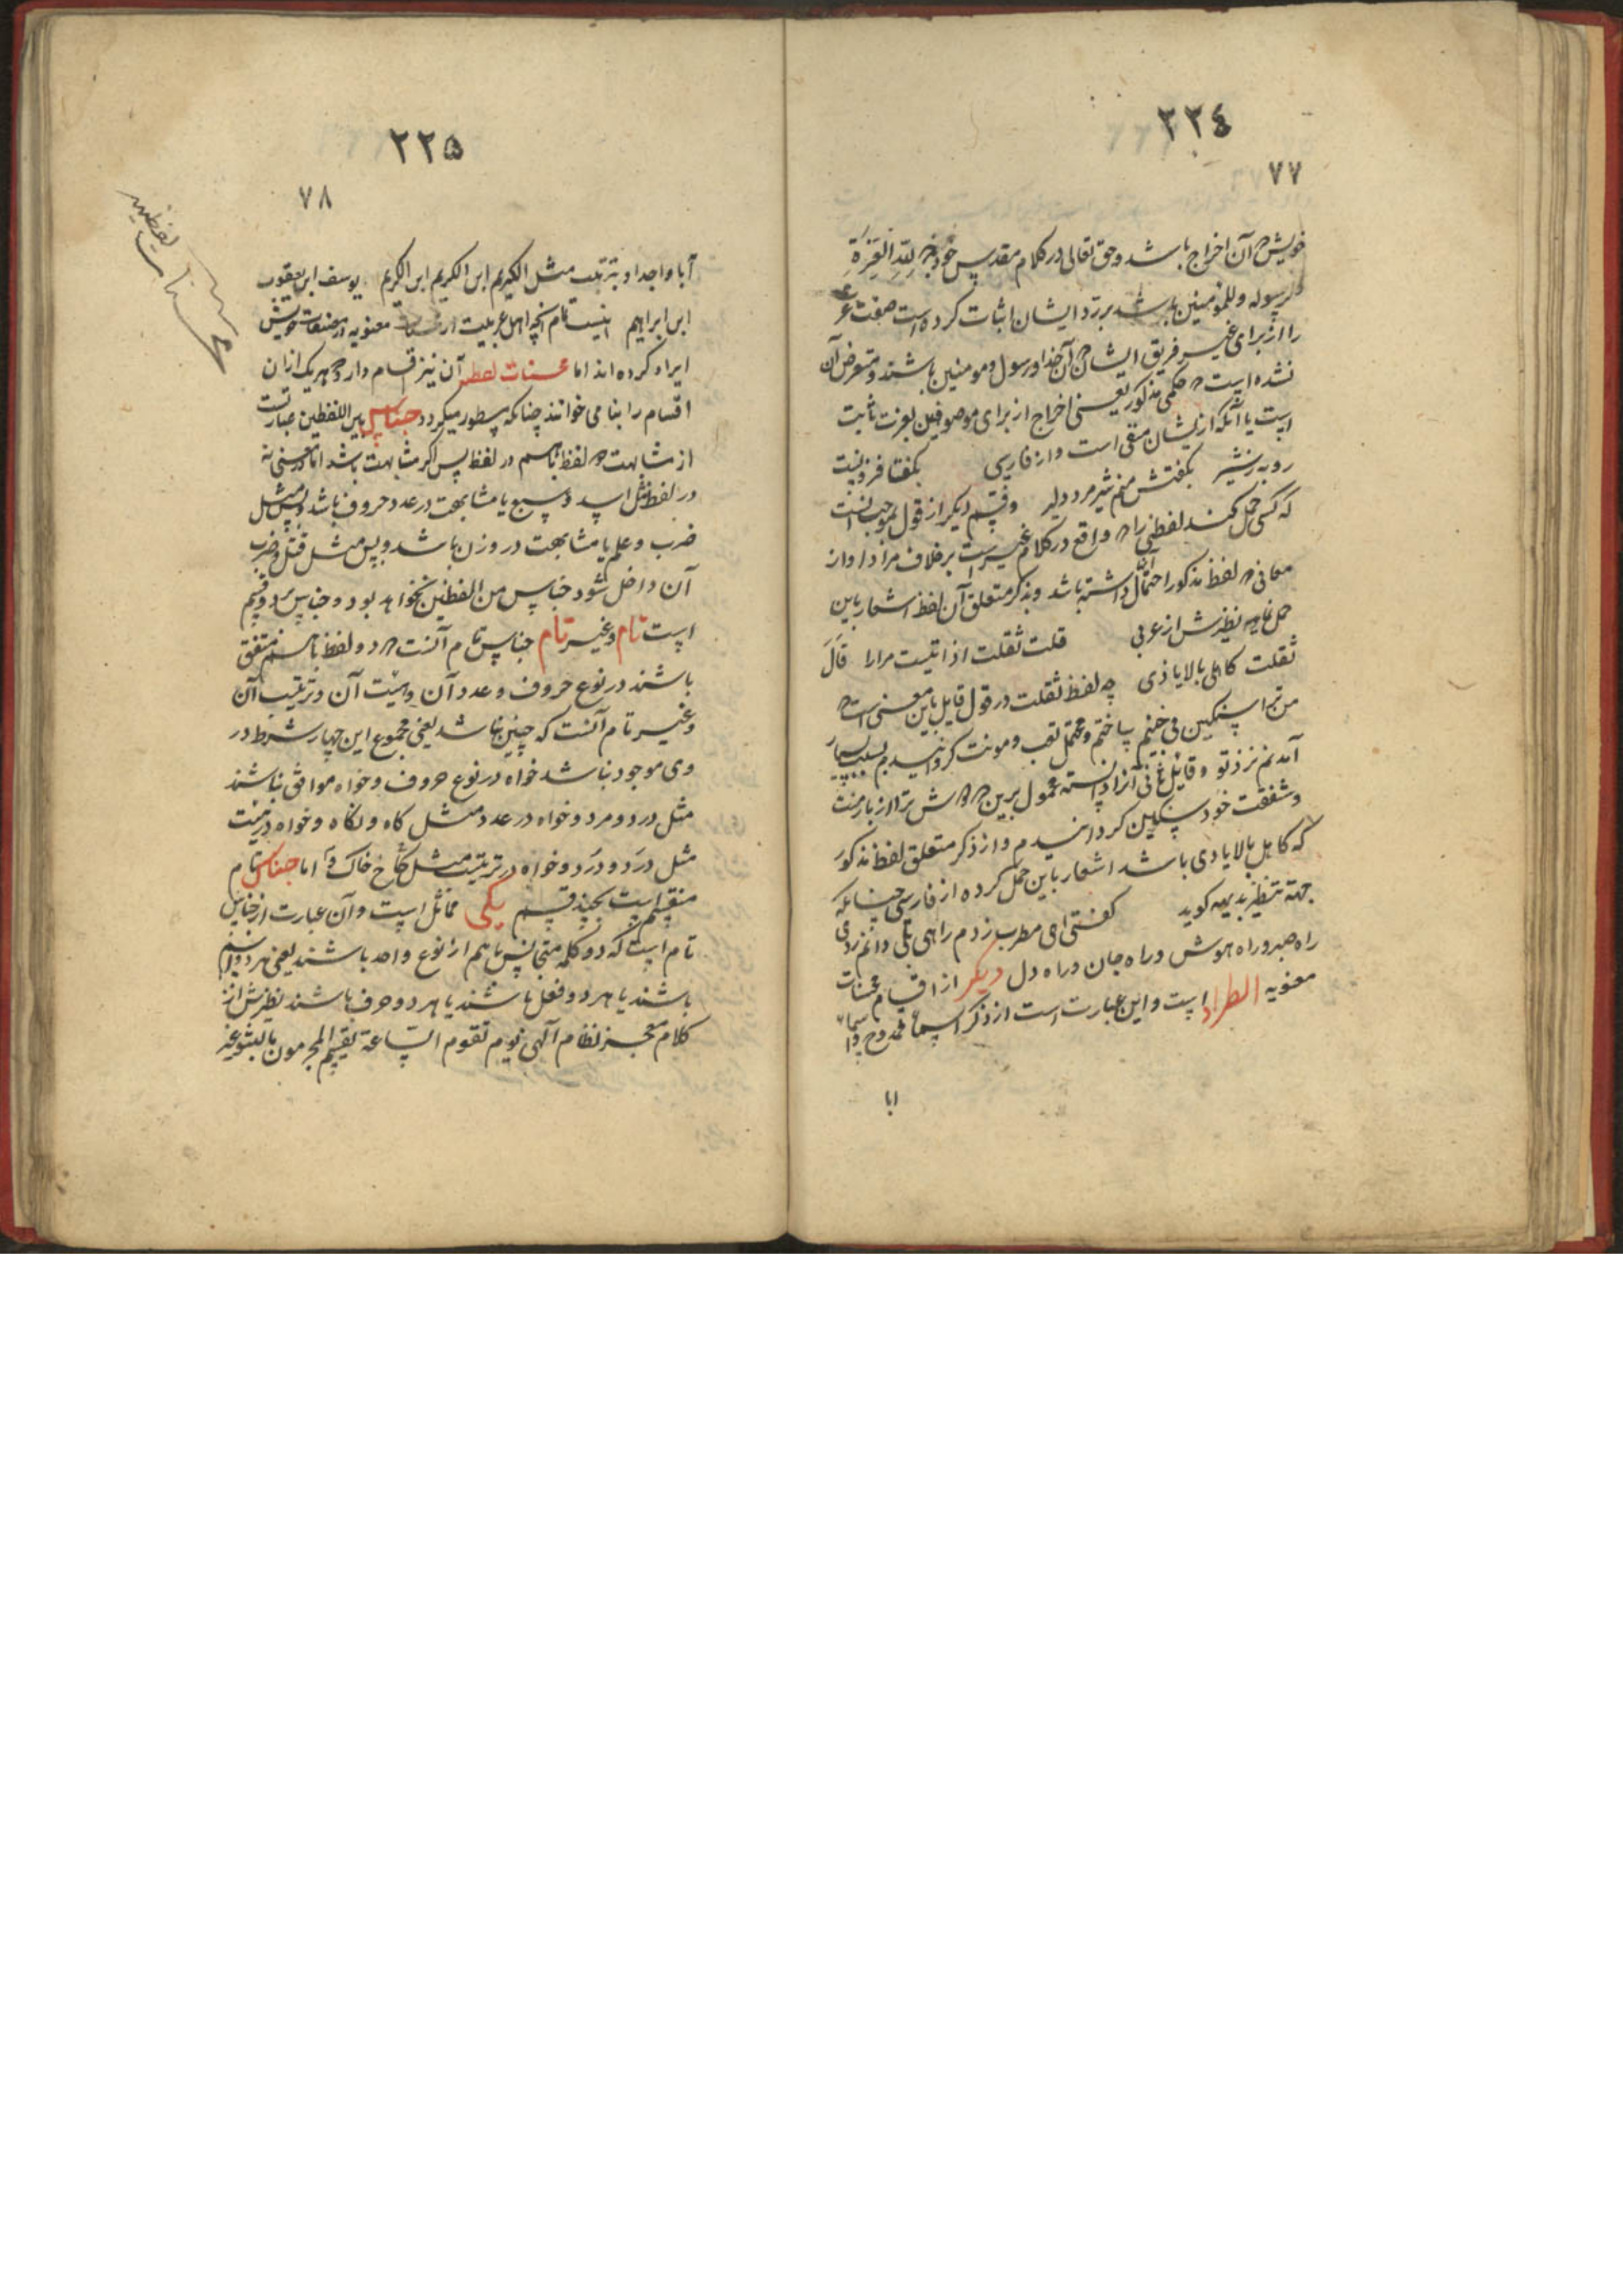 ٢٢٤
٧٧
خویش که آن اخراج باشد و حق تعالی در کلام مقدس خود لله العزة
و لرسوله و للمؤمنین باشد برزد ایشان اثبات کرده است صفت
را از برای غیر فریق ایشان که آن خدا و رسول و مومنین باشند و متعرض آن
نشده است که حکمی مذکور یعنی اخراج از برای موصوفین بعزت ثابت
است یا آنکه از یشان منفی است و از فارسی بگفتا
رو به بگفتش منم شیر مرد دلیر و قسم دیگر از قول بموجب آنست
که کسی حمل کند لفظی را که واقع در کلام غیر است بر خلاف مراد او از
معانی که لفظ مذکور احتمال آن داشته باشد و بذکر متعلق آن لفظ اشعار باین
حمل نماید نظیرش از عربی قلت ثقلت اذ اتیت مرارا قال
ثقلت کاهلی بالایادی چه لفظ ثقلت در قول قایل باین معنی است که
من ترا سنگین ساختم و متحمل تعب و مونت گردانیدم بسبب بسیار
آمدنم نزد تو و قایل ثانی آنرا دانسته محمول برین که دوش ترا از بار منت
و شفقت خود سنگین گردانیدم و از ذکر متعلق لفظ مذکور
که کاهل بالایادی باشد اشعار باین حمل کرده از فارسی چنانکه
جهة تنظیر بدیهه کوید گفتی ای مطرب زدم راهی بلی دانم زدی
راه صبر و راه هوش و راه جان و راه دل دیگر از اقسام محسنات
معنویه اطراد است و این عبارت است از ذکر اسماء ممدوح و اسماء
ابا
٢٢٥
٧٨
محسنات لفظیه
آبا و اجداد بترتیب مثل الکریم ابن الکریم ابن الکریم یوسف ابن یعقوب
ابن ابراهیم اینست تمام آنچه اهل عربیت از محسنات معنویه در مصنفات خویش
ایراد کرده اند اما محسنات لفظیه آن نیز اقسام دارد که هر یک از ان
اقسام را بنامی خوانند چنانکه مسطور میگردد جناس بین اللفظین عبارتست
از مشابهت دو لفظ باهم در لفظ پس اگر مشابهت باشد اما در معنی نه
در لفظ مثل اسد و سبع یا مشابهت در عدد حروف باشد و بس مثل
ضرب و علم یا مشابهت در وزن باشد و بس مثل قتل و ضرب
آن داخل شود جناس من اللفظین نخواهد بود و جناس بر دو قسم
است تام و غیر تام جناس تام آنست که دو لفظ باهم متفق
باشند در نوع حروف و عدد آن و هیئت آن و ترتیب آن
و غیر تام آنست که چنین نباشد یعنی مجموع این چهار شرط در
وی موجود نباشد خواه در نوع حروف و خواه موافق نباشند
مثل درد و مرد و خواه در عدد مثل کاه و نکاه و خواه در هیئت
مثل درَد و درَد و خواه در ترتیب مثل کاخ و خاک اما جناس تام
منقسم است بچند قسم یکی مماثل است و آن عبارت از جناس
تام است که دو کلمه متجانس باهم از نوع واحد باشند یعنی هر دو اسم
باشند یا هر دو فعل باشند یا هر دو حرف باشند نظیرش از
کلام معجز نظام آلهی یوم تقوم الساعة یقسم المجرمون مالبثوا غیر